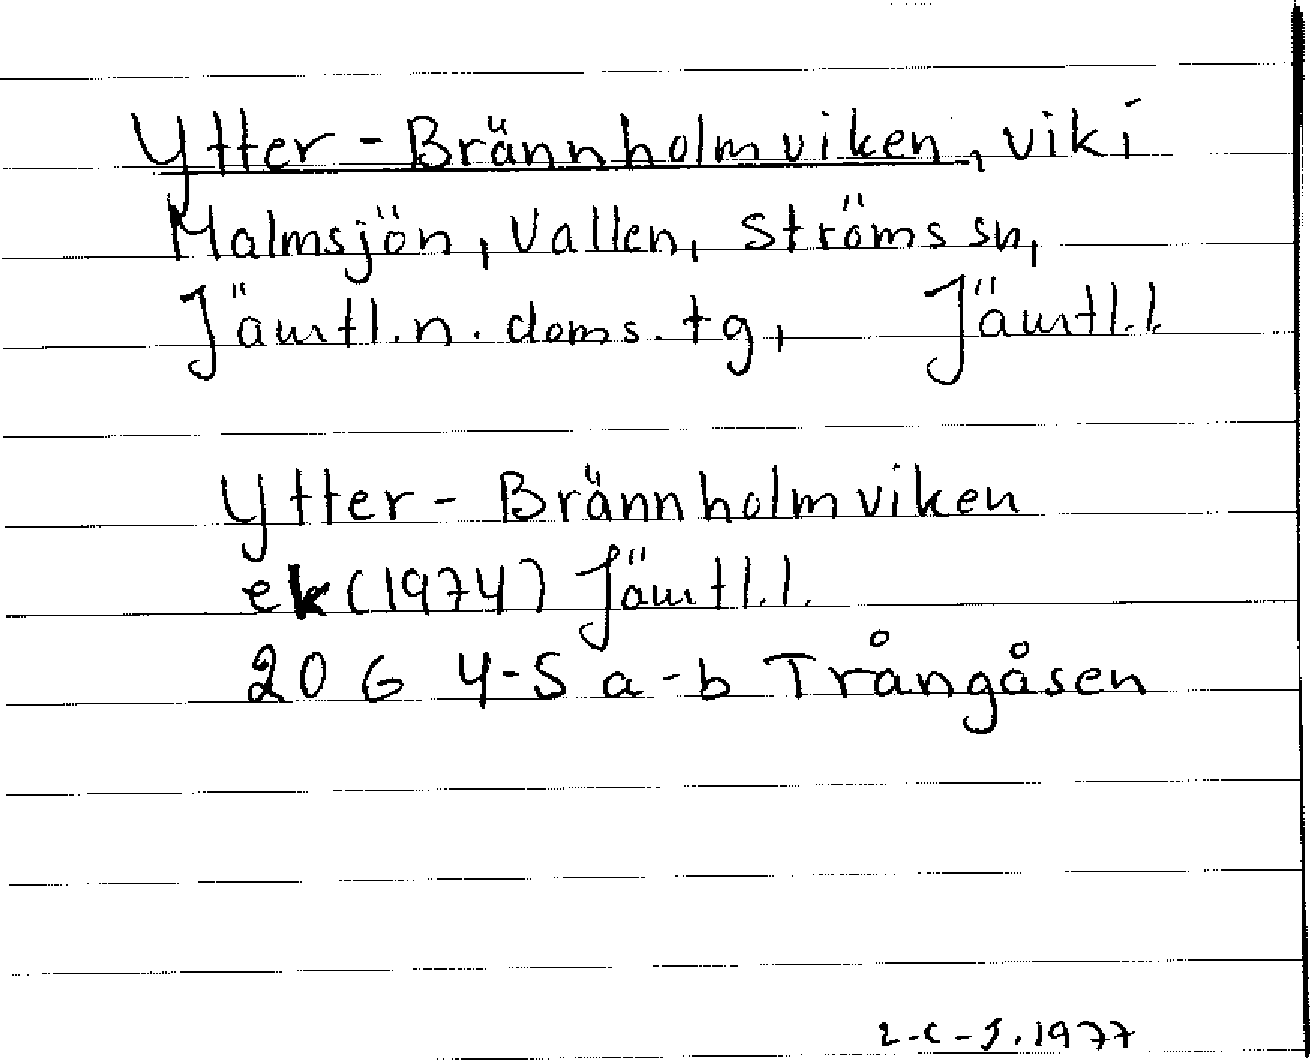 Ytter-Brännholmviken, vik i
Malmsjön, Vallen, Ströms sn,
Jämtl.n.doms.tg, Jämtl.l.
Ytter-Brännholmviken
ek (1974) Jämtl.l.
20 G 4-5 a-b Trångåsen
1977